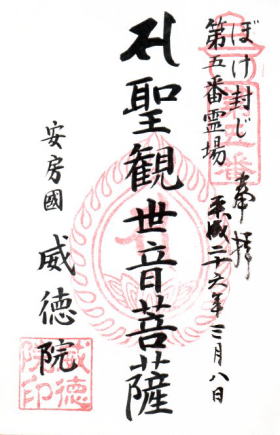 ぼけ封じ
第五番霊場
奉拝
平成二十六年三月八日
聖観世音菩薩
安房國
威徳院
第五番
威徳院印